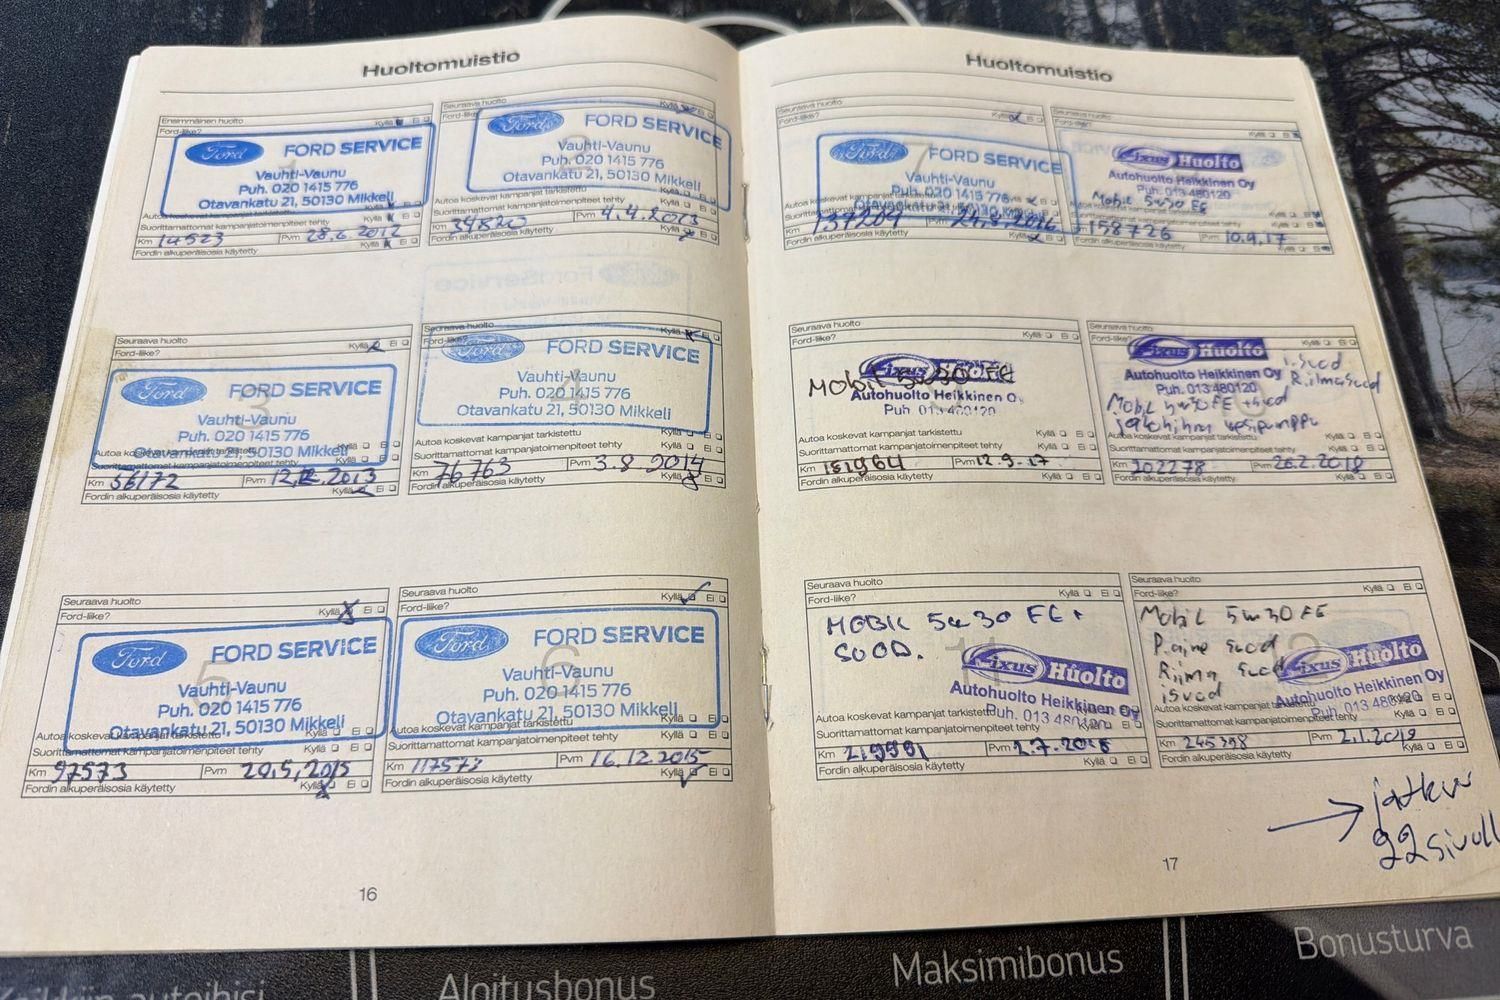 Huoltomuistio
Ensimmäinen huolto
Ford-liike?
Kyllä
Ei
Ford
FORD SERVICE
Vauhti-Vaunu
Puh. 020 1415 776
Otavankatu 21, 50130 Mikkeli
Autoa koskevat kampanjat tarkistettu
Suorittamattomat kampanjatoimenpiteet tehty
Km 14523
Pvm 28.6.2012
Fordin alkuperäisosia käytetty
Seuraava huolto
Kyllä
Ei
Ford
FORD SERVICE
Vauhti-Vaunu
Puh. 020 1415 776
Otavankatu 21, 50130 Mikkeli
Suorittamattomat kampanjatoimenpiteet tehty
Km 34820
Pvm 4.4.2013
Fordin alkuperäisosia käytetty
Seuraava huolto
Ford-liike?
Kyllä Ei
3
Ford
FORD SERVICE
Vauhti-Vaunu
Puh. 020 1415 776
Otavankatu 21, 50130 Mikkeli
Km 56172
Pvm 12.12.2013
Fordin alkuperäisosia käytetty
Kyllä Ei
Seuraava huolto
Ford-liike?
Kyllä Ei
4
Ford
FORD SERVICE
Vauhti-Vaunu
Puh. 020 1415 776
Otavankatu 21, 50130 Mikkeli
Autoa koskevat kampanjat tarkistettu
Suorittamattomat kampanjatoimenpiteet tehty
Kyllä Ei
Km 76763
Pvm 3.8.2014
Fordin alkuperäisosia käytetty
Kyllä Ei
Seuraava huolto
Ford-liike?
Kyllä Ei
5
Ford
FORD SERVICE
Vauhti-Vaunu
Puh. 020 1415 776
Otavankatu 21, 50130 Mikkeli
Autoa koskevat kampanjat tarkistettu
Suorittamattomat kampanjatoimenpiteet tehty
Kyllä Ei
Km 97573
Pvm 20.5.2015
Fordin alkuperäisosia käytetty
Kyllä Ei
Seuraava huolto
Ford-liike?
Kyllä Ei
6
Ford
FORD SERVICE
Vauhti-Vaunu
Puh. 020 1415 776
Otavankatu 21, 50130 Mikkeli
Autoa koskevat kampanjat tarkistettu
Suorittamattomat kampanjatoimenpiteet tehty
Kyllä Ei
Km 117573
Pvm 16.12.2015
Fordin alkuperäisosia käytetty
Kyllä Ei
16
Huoltomuistio
Seuraava huolto
Ford-liike?
7
Ford
FORD SERVICE
Vauhti-Vaunu
Puh. 020 1415 776
Otavankatu 21, 50130 Mikkeli
Autoa koskevat kampanjat tarkistettu
Km 137204
Pvm
Fordin alkuperäisosia käytetty
Kyllä Ei
Fixus Huolto
Autohuolto Heikkinen Oy
Puh. 013 480120
Mobil 5w30 FE
158726
Pvm 10.9.17
Seuraava huolto
Ford-liike?
Kyllä Ei
Mobil 5w30 FE
Fixus
Autohuolto Heikkinen Oy
Puh 013 480120
Autoa koskevat kampanjat tarkistettu
Suorittamattomat kampanjatoimenpiteet tehty
Kyllä Ei
Km 181964
Pvm 12.9-17
Fordin alkuperäisosia käytetty
Kyllä Ei
Seuraava huolto
Fixus Huolto
Autohuolto Heikkinen Oy
Puh. 013 480120
i.suod
R.ilmasuod
Mobil 5w30 FE + suod
jakohihna vesipumppu
Autoa koskevat kampanjat tarkistettu
Suorittamattomat kampanjatoimenpiteet tehty
Km 202278
Pvm 26.2.2018
Fordin alkuperäisosia käytetty
Kyllä Ei
Seuraava huolto
Ford-liike?
Kyllä Ei
MOBIL 5w30 FE+
SUOD.
11
Fixus Huolto
Autohuolto Heikkinen Oy
Puh. 013 480120
Autoa koskevat kampanjat tarkistettu
Suorittamattomat kampanjatoimenpiteet tehty
Km 219991
Pvm 2.7.2018
Fordin alkuperäisosia käytetty
Kyllä Ei
Seuraava huolto
Ford-liike?
Kyllä Ei
Mobil 5w30 FE
P.aine suod
R.ilma suod
isuod
12
Fixus Huolto
Autohuolto Heikkinen Oy
Puh. 013 480120
Autoa koskevat kampanjat tarkistettu
Suorittamattomat kampanjatoimenpiteet tehty
Km 245398
Pvm 2.1.2019
Fordin alkuperäisosia käytetty
Kyllä Ei
jatkuu
22 sivull
17
Aloitusbonus
Maksimibonus
Bonusturva